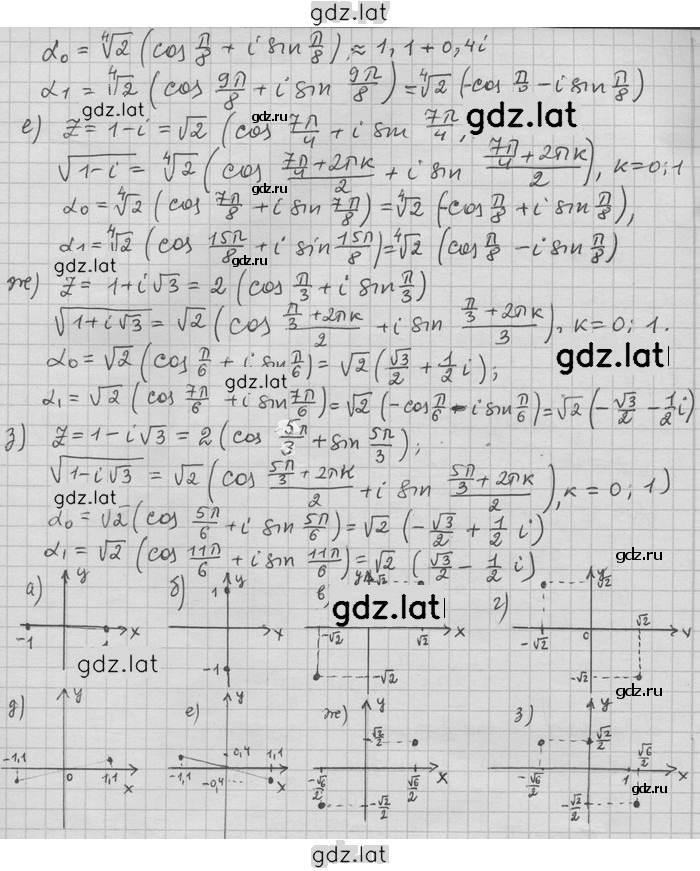 gdz.lat
α₀ = ⁴√2 (cos π/8 + i sin π/8) ≈ 1,1 + 0,4i
α₁ = ⁴√2 (cos 9π/8 + i sin 9π/8) = ⁴√2 (-cos π/8 - i sin π/8)
gdz.lat
gdz.lat
е) z = 1-i = √2 (cos 7π/4 + i sin 7π/4,
√(1-i) = ⁴√2 (cos (7π/4 + 2πк)/2 + i sin (7π/4 + 2πк)/2), к=0;1
α₀ = ⁴√2 (cos 7π/8 + i sin 7π/8) = ⁴√2 (-cos π/8 + i sin π/8),
α₁ = ⁴√2 (cos 15π/8 + i sin 15π/8) = ⁴√2 (cos π/8 - i sin π/8)
gdz.lat
ж) z = 1+i√3 = 2 (cos π/3 + i sin π/3)
√(1+i√3) = √2 (cos (π/3 + 2πк)/2 + i sin (π/3 + 2πк)/3), к=0; 1.
α₀ = √2 (cos π/6 + i sin π/6) = √2 (√3/2 + 1/2 i);
gdz.lat
gdz.lat
α₁ = √2 (cos 7π/6 + i sin 7π/6) = √2 (-cos π/6 - i sin π/6) = √2 (-√3/2 - 1/2 i)
з) z = 1-i√3 = 2 (cos 5π/3 + sin 5π/3);
√(1-i√3) = √2 (cos (5π/3 + 2πк)/2 + i sin (5π/3 + 2πк)/2), к = 0; 1)
gdz.lat
α₀ = √2 (cos 5π/6 + i sin 5π/6) = √2 (-√3/2 + 1/2 i)
α₁ = √2 (cos 11π/6 + i sin 11π/6) = √2 (√3/2 - 1/2 i)
gdz.lat
а) y -1 1 x
б) y 1 -1 x
в) y √2 -√2 √2 x -√2
г) y √2 -√2 0 √2 x -√2
gdz.lat
gdz.lat
д) y -1,1 0 1,1 x
е) y 0,4 1,1 -1,1 -0,4 x
ж) y √2/2 -√6/2 √6/2 x -√2/2
з) y √2/2 √6/2 -√6/2 1 x -√2/2
gdz.lat